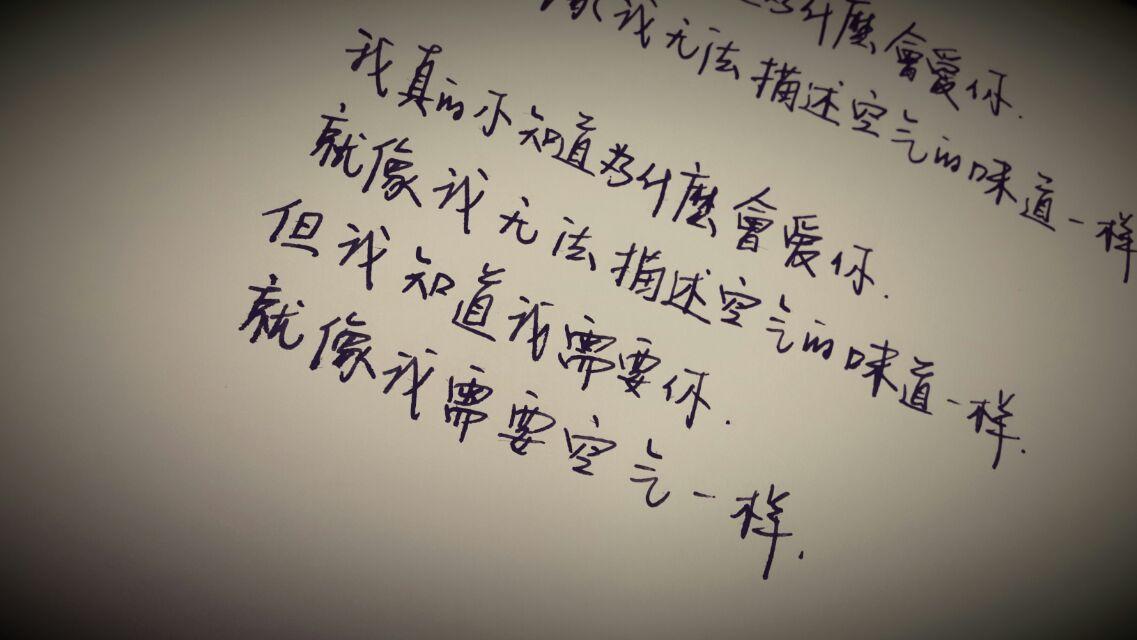 为什麼會愛你.
像我无法描述空气的味道一样
我真的不知道为什麼會爱你.
就像我无法描述空气的味道一样.
但我知道我需要你.
就像我需要空气一样.